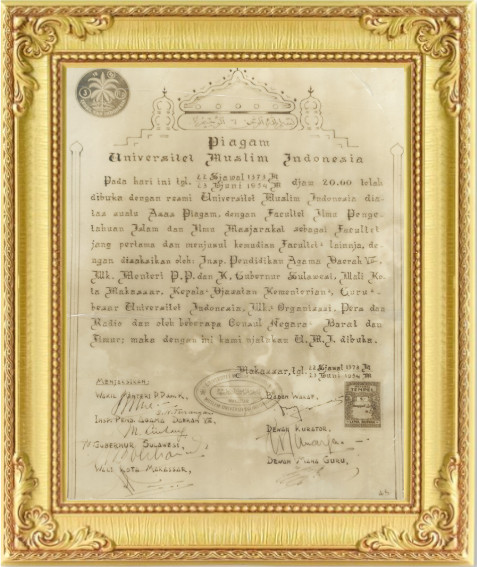 Piagam
Universitet Muslim Indonesia
Pada hari ini tgl. 22 Sjawal 1373 H djam 20.00 telah
23 Djuni 1954 M
dibuka dengan resmi Universitet Muslim Indonesia dia-
tas suatu Asas Piagam, dengan Facultet Ilmu Penge-
tahuan Islam dan Ilmu Masjarakat sebagai Facultet
jang pertama dan menjusul kemudian Facultet² lainnja, de-
ngan disaksikan oleh: Insp. Pendidikan Agama Daerah VII,
Wk. Menteri P.P. dan K. Gubernur Sulawesi, Wali Ko-
ta Makassar, Kepala² Djawatan Kementerian², Guru-
besar Universitet Indonesia, Wk² Organisasi, Pers dan
Radio dan oleh beberapa Consul Negara² Barat dan
Timur; maka dengan ini kami njatakan U.M.I dibuka.
Makassar, tgl. 22 Sjawal 1373 H
23 Djuni 1954 M
Menjaksikan:
Wakil Menteri P.P. dan K,
Badan Wakaf,
Insp. Pend. Agama Daerah VII,
Dewan Kurator,
Gubernur Sulawesi,
Wali Kota Makassar,
Dewan Maha Guru,